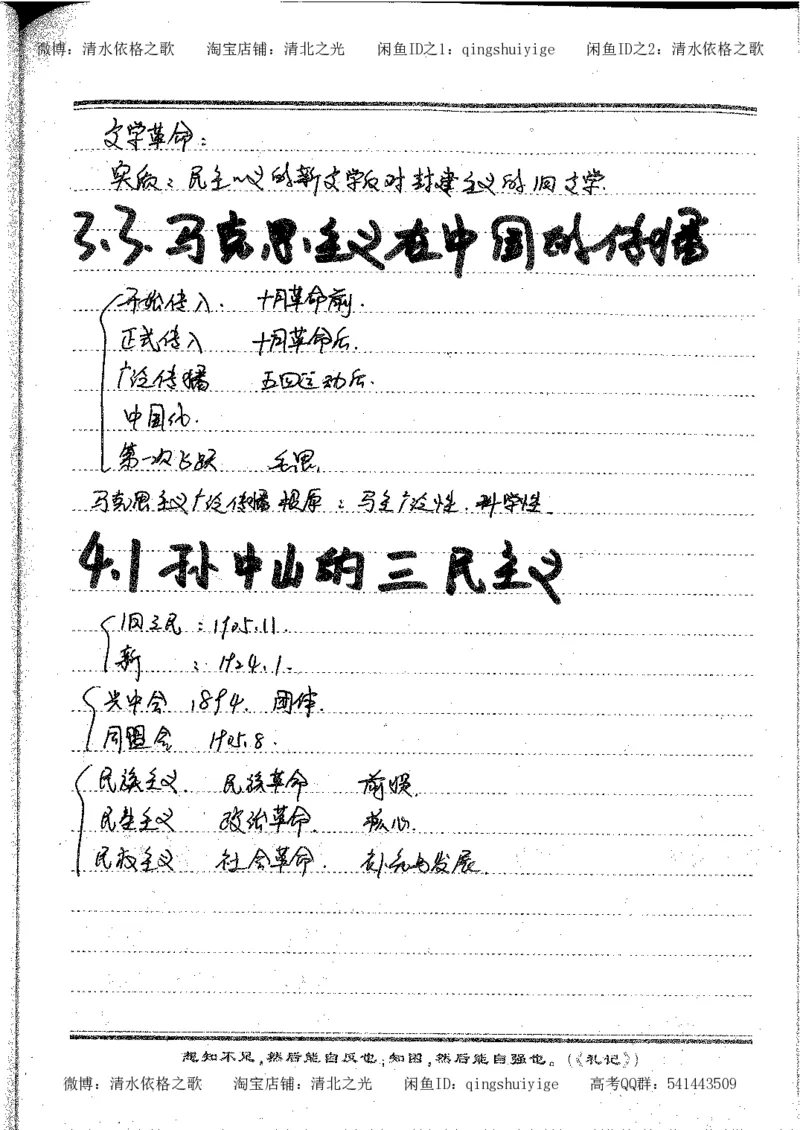 微博：清水依格之歌 淘宝店铺：清北之光 闲鱼ID之1：qingshuiyige 闲鱼ID之2：清水依格之歌
文学革命：
实质：民主主义的新文学反对封建主义的旧文学.
3.3.马克思主义在中国的传播
开始传入. 十月革命前.
正式传入 十月革命后.
广泛传播 五四运动后.
中国化.
第一次飞跃 毛思.
马克思主义广泛传播根原：马主广泛性.科学性.
4.1孙中山的三民主义
旧三民：1905.11.
新 ：1924.1.
兴中会 1894. 团体.
同盟会 1905.8.
民族主义. 民族革命 前提.
民生主义 政治革命. 核心.
民权主义 社会革命. 补充与发展.
想知不足,然后能自反也;知困,然后能自强也。(《礼记》)
微博：清水依格之歌 淘宝店铺：清北之光 闲鱼ID：qingshuiyige 高考QQ群：541443509